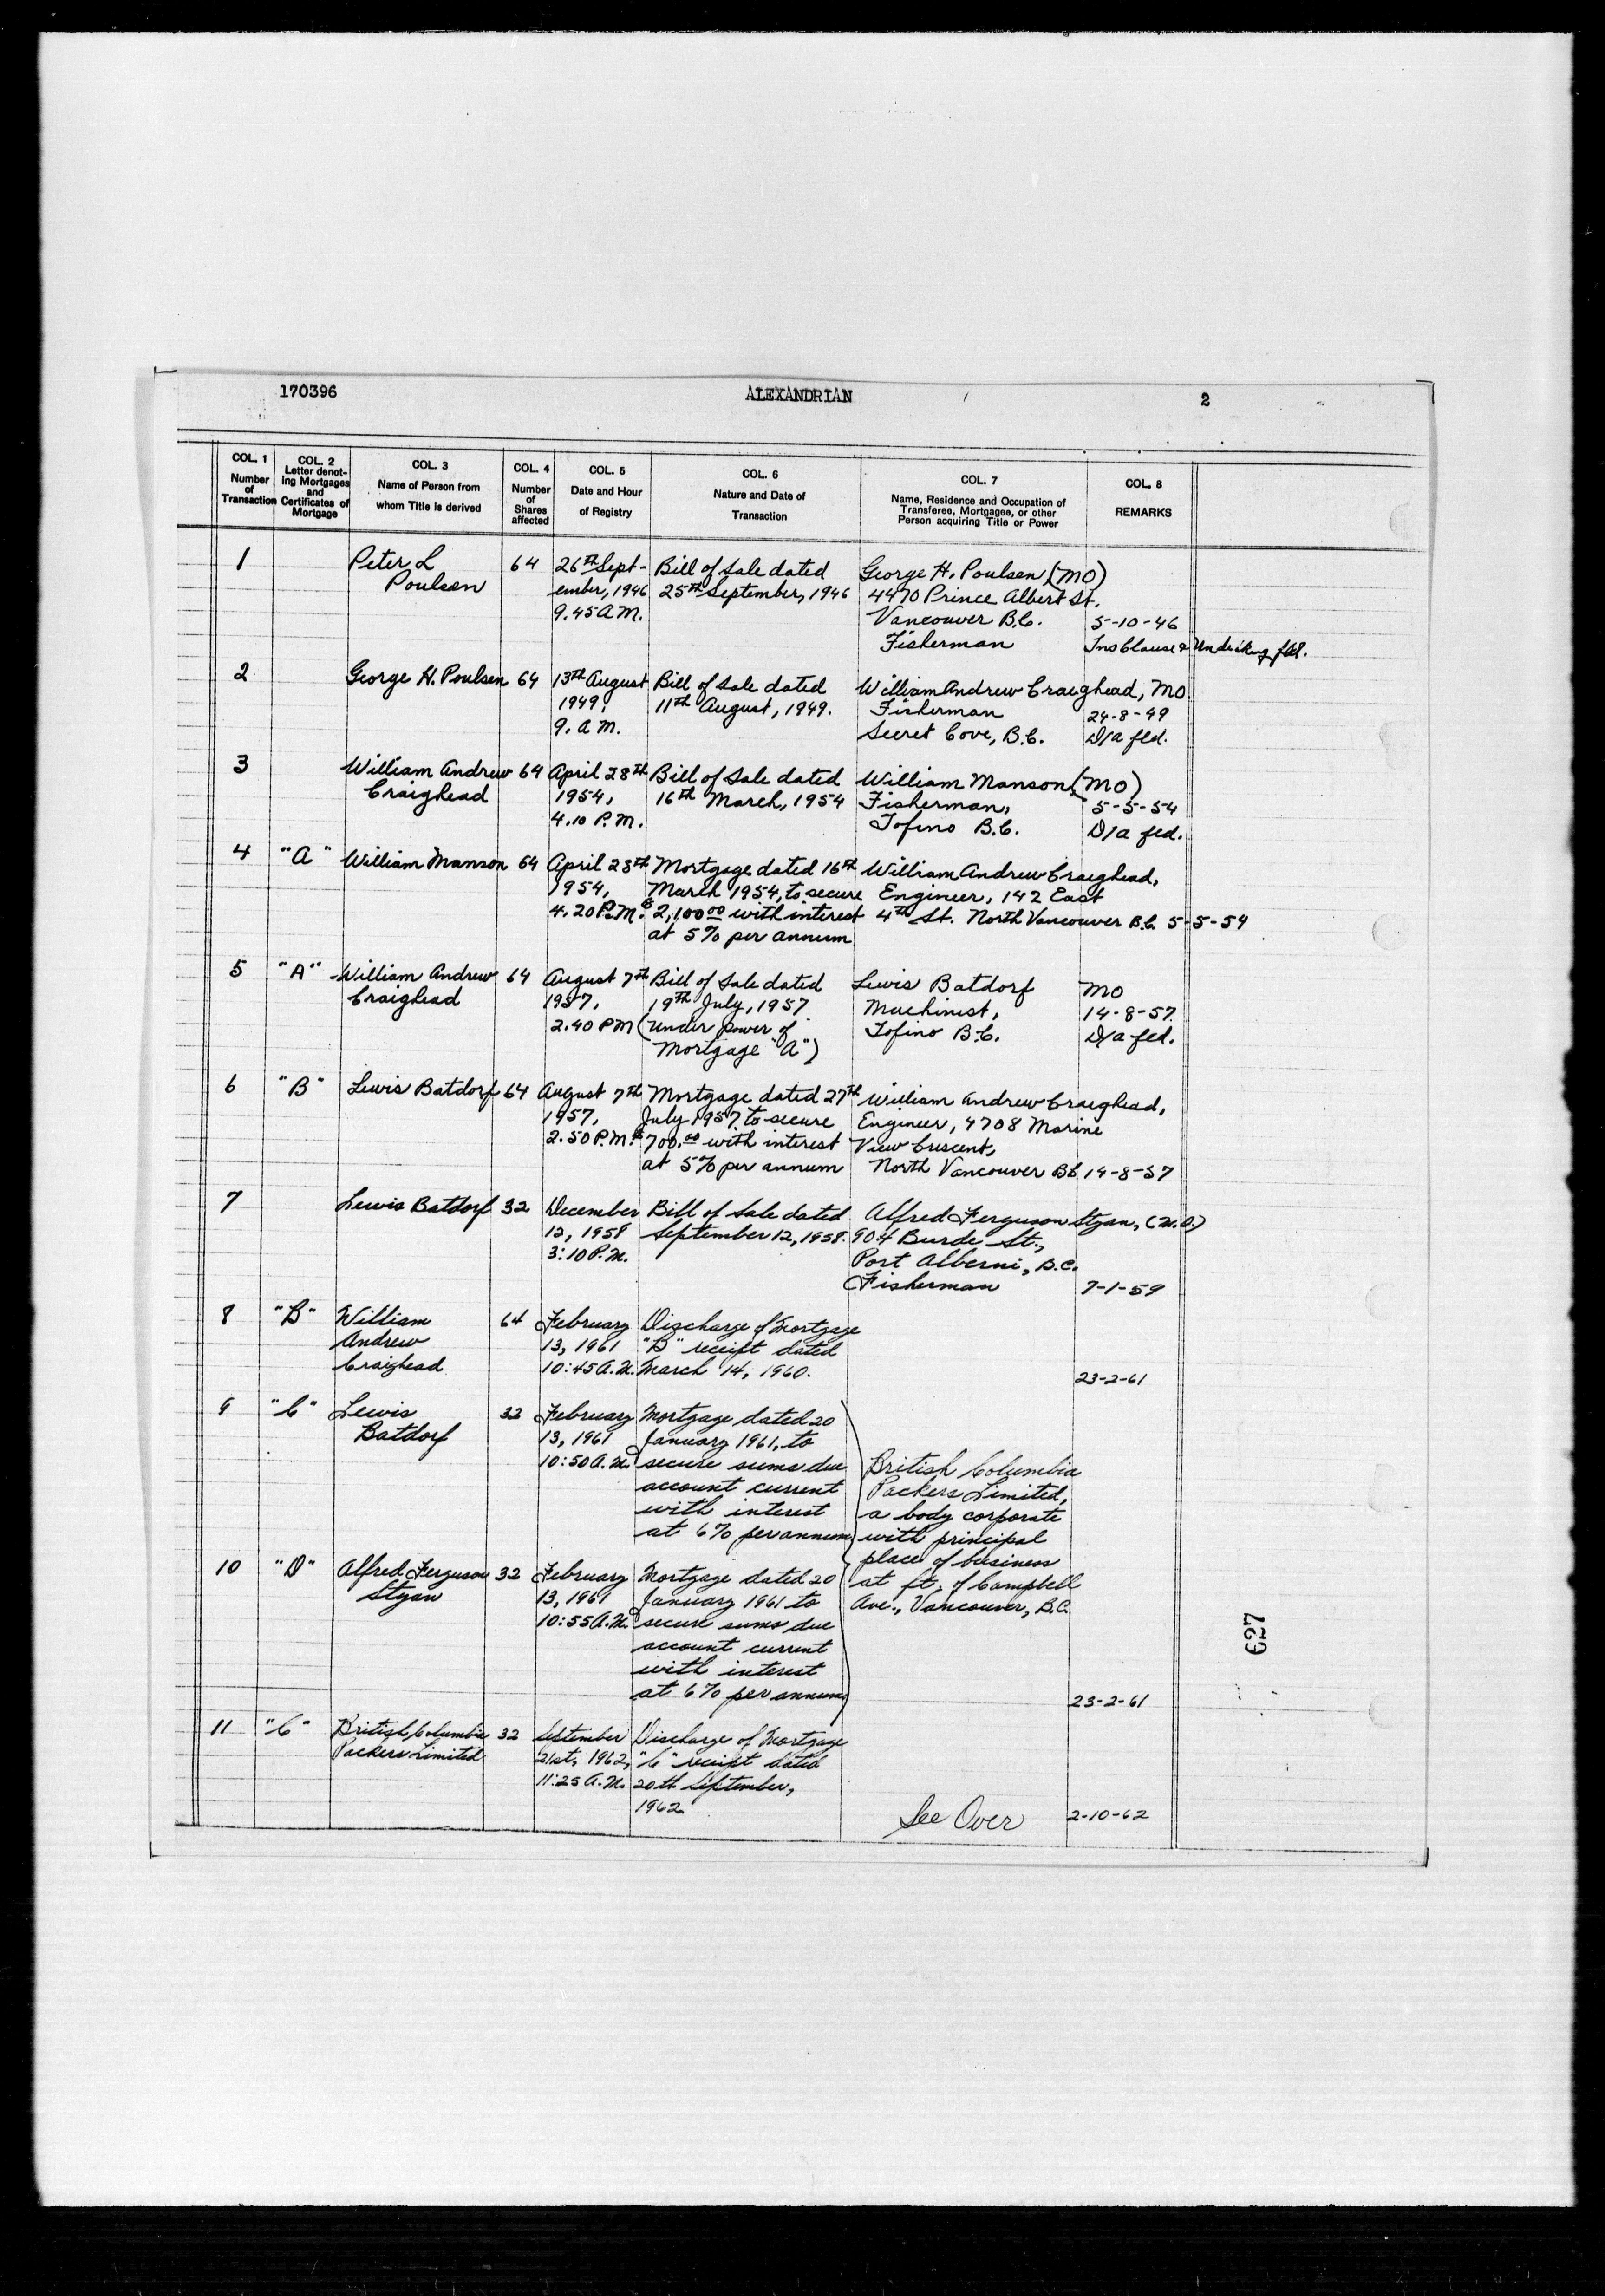 170396 ALEXANDRIAN 2
COL. 1 Number of Transaction
COL. 2 Letter denoting Mortgages and Certificates of Mortgage
COL. 3 Name of Person from whom Title is derived
COL. 4 Number of Shares affected
COL. 5 Date and Hour of Registry
COL. 6 Nature and Date of Transaction
COL. 7 Name, Residence and Occupation of Transferee, Mortgagee, or other Person acquiring Title or Power
COL. 8 REMARKS
1 Peter L 64 26th Sept- Bill of Sale dated George H. Poulsen (MO)
Poulsen ember, 1946 25th September, 1946 4470 Prince Albert St.
9.45 A.M. Vancouver B.C. 5-10-46
Fisherman Ins Clause &
2 George H. Poulsen 64 13th August Bill of Sale dated William Andrew Craighead, MO
1949, 11th August, 1949. Fisherman 24-8-49
9. A.M. Secret Cove, B.C. D/a fld.
3 William Andrew 64 April 28th Bill of Sale dated William Manson (MO)
Craighead 1954, 16th March, 1954 Fisherman, 5-5-54
4.10 P.M. Tofino B.C. D/a fld.
4 "A" William Manson 64 April 28th Mortgage dated 16th William Andrew Craighead,
1954, March 1954, to secure Engineer, 142 East
4.20 P.M. $2,100.00 with interest 4th St. North Vancouver B.C. 5-5-54
at 5% per annum
5 "A" William Andrew 64 August 7th Bill of Sale dated Lewis Batdorf MO
Craighead 1957, 19th July, 1957 Machinist, 14-8-57.
2.40 PM (Under power of Tofino B.C. D/a fld.
Mortgage "A")
6 "B" Lewis Batdorf 64 August 7th Mortgage dated 27th William Andrew Craighead,
1957, July 1957, to secure Engineer, 4708 Marine
2.50 P.M. $700.00 with interest View Crescent,
at 5% per annum North Vancouver BC 14-8-57
7 Lewis Batdorf 32 December Bill of Sale dated Alfred Ferguson Styan, (M.O.)
12, 1958 September 12, 1958. 904 Burde St.,
3:10 P.M. Port Alberni, B.C.
Fisherman 7-1-59
8 "B" William 64 February Discharge of Mortgage
Andrew 13, 1961 "B" receipt dated
Craighead 10:45 A.M. March 14, 1960.
23-2-61
9 "C" Lewis 32 February Mortgage dated 20
Batdorf 13, 1961 January 1961, to
10:50 A.M. secure sums due British Columbia
account current Packers Limited,
with interest a body corporate
at 6% per annum with principal
place of business
10 "D" Alfred Ferguson 32 February Mortgage dated 20 at ft. of Campbell
Styan 13, 1961 January 1961 to Ave., Vancouver, B.C.
10:55 A.M. secure sums due
account current
with interest
at 6% per annum 23-2-61
11 "C" British Columbia 32 September Discharge of Mortgage
Packers Limited 21st, 1962, "C" receipt dated
11:25 A.M. 20th September,
1962. See Over 2-10-62
627